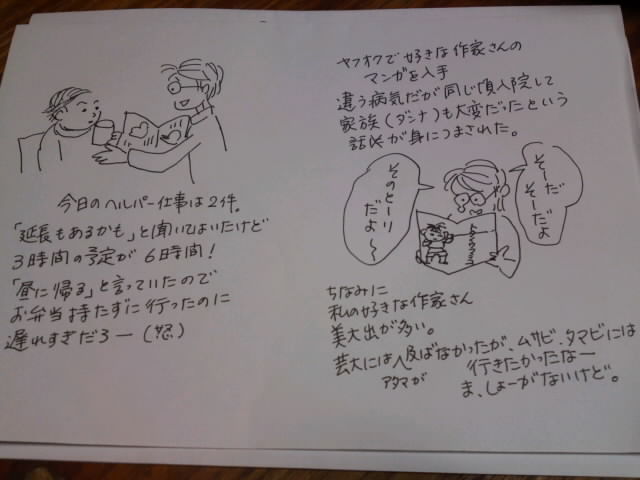 今日のヘルパー仕事は2件。
「延長もあるかも」と聞いてはいたけど
3時間の予定が6時間!
「昼に帰る」と言っていたので
お弁当持たずに行ったのに
遅れすぎだろー(怒)
ヤフオクで好きな作家さんの
マンガを入手
違う病気だが同じ頃入院して
家族(ダンナ)も大変だったという
話が身につまされた。
そーだ
そーだよ
そのとーり
だよ〜
ちなみに
私の好きな作家さん
美大出が多い。
芸大には及ばなかったが、ムサビ、タマビには
アタマが
行きたかったなー
ま、しょーがないけど。